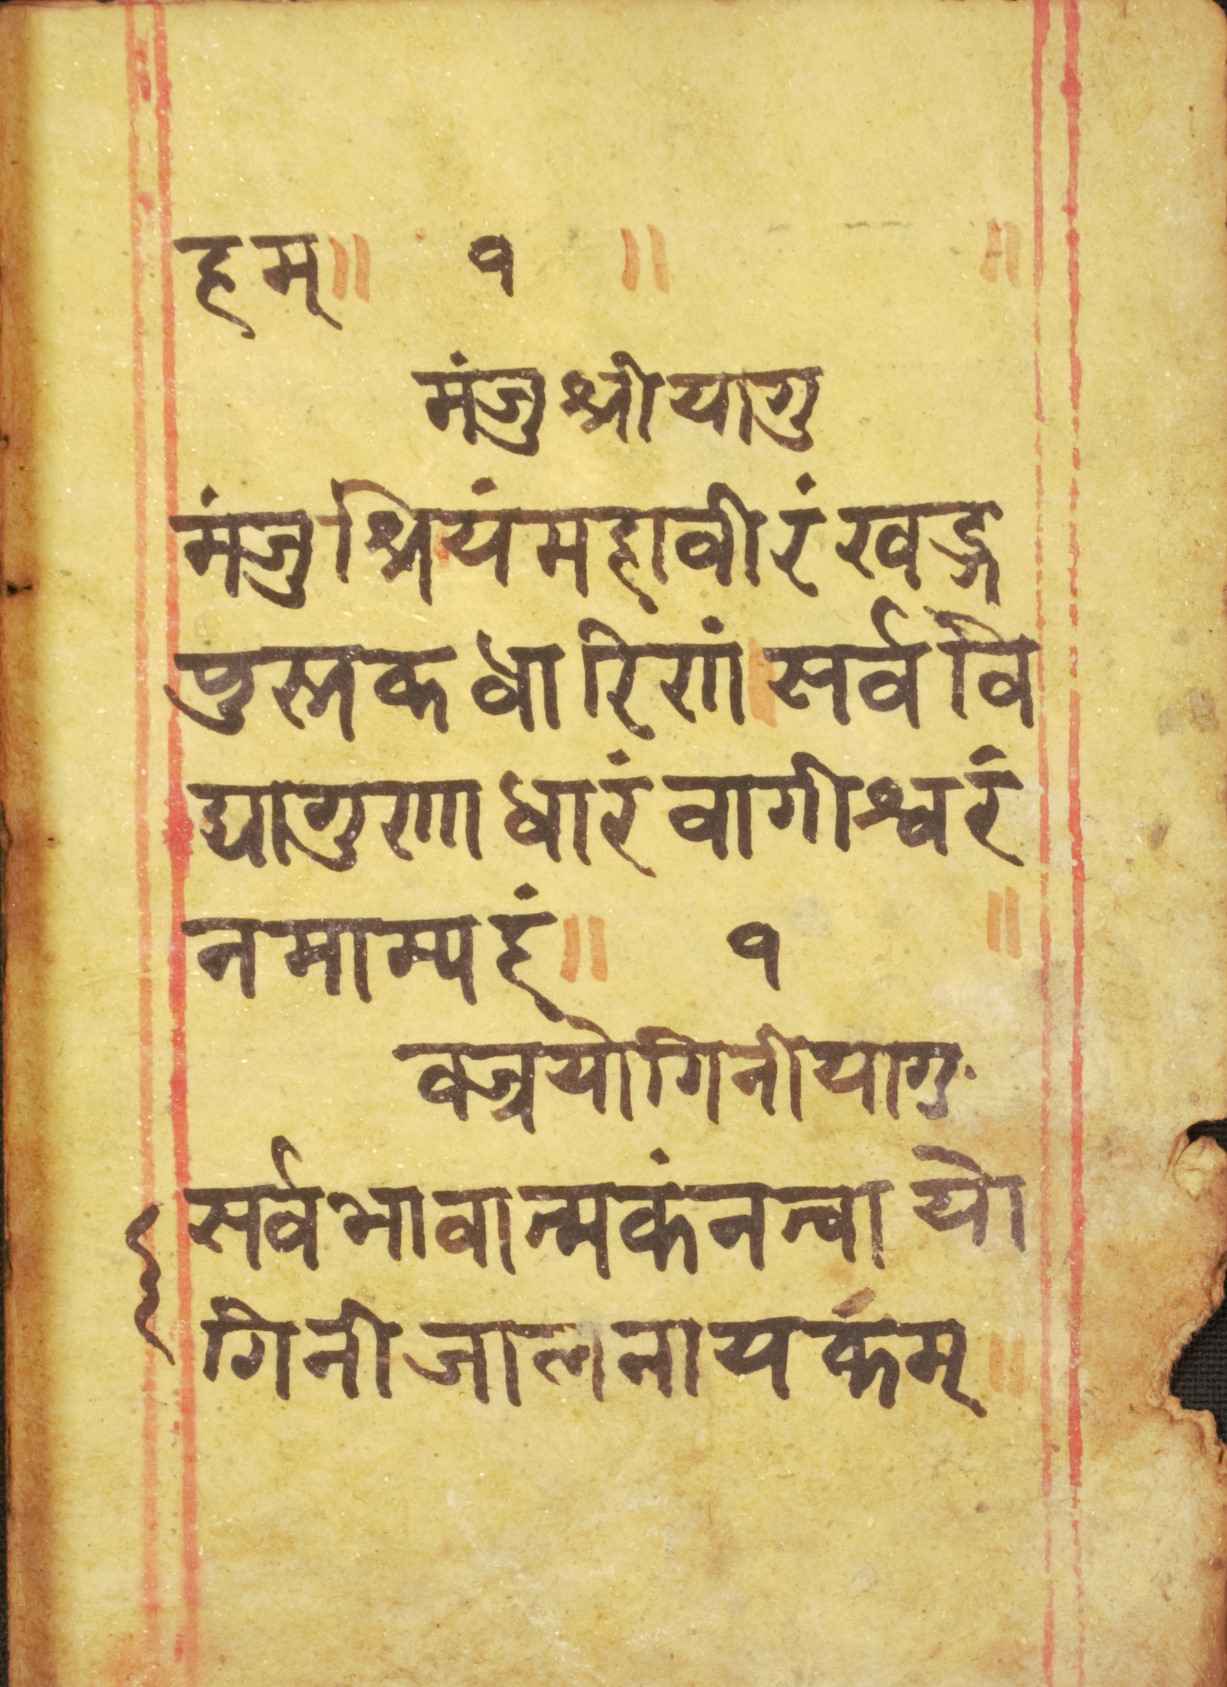 हम्॥ १ ॥ ॥
मंजुश्रीयागु
मंजुश्रियंमहावीरं खड्ग
पुस्तकधारिणं।सर्ववि
द्यागुणाधारं वागीश्वरं
नमाम्यहं॥ १ ॥
वज्रयोगिनीयागु
सर्वभावात्मकंनत्वा यो
गिनीजालनायर्कम्॥